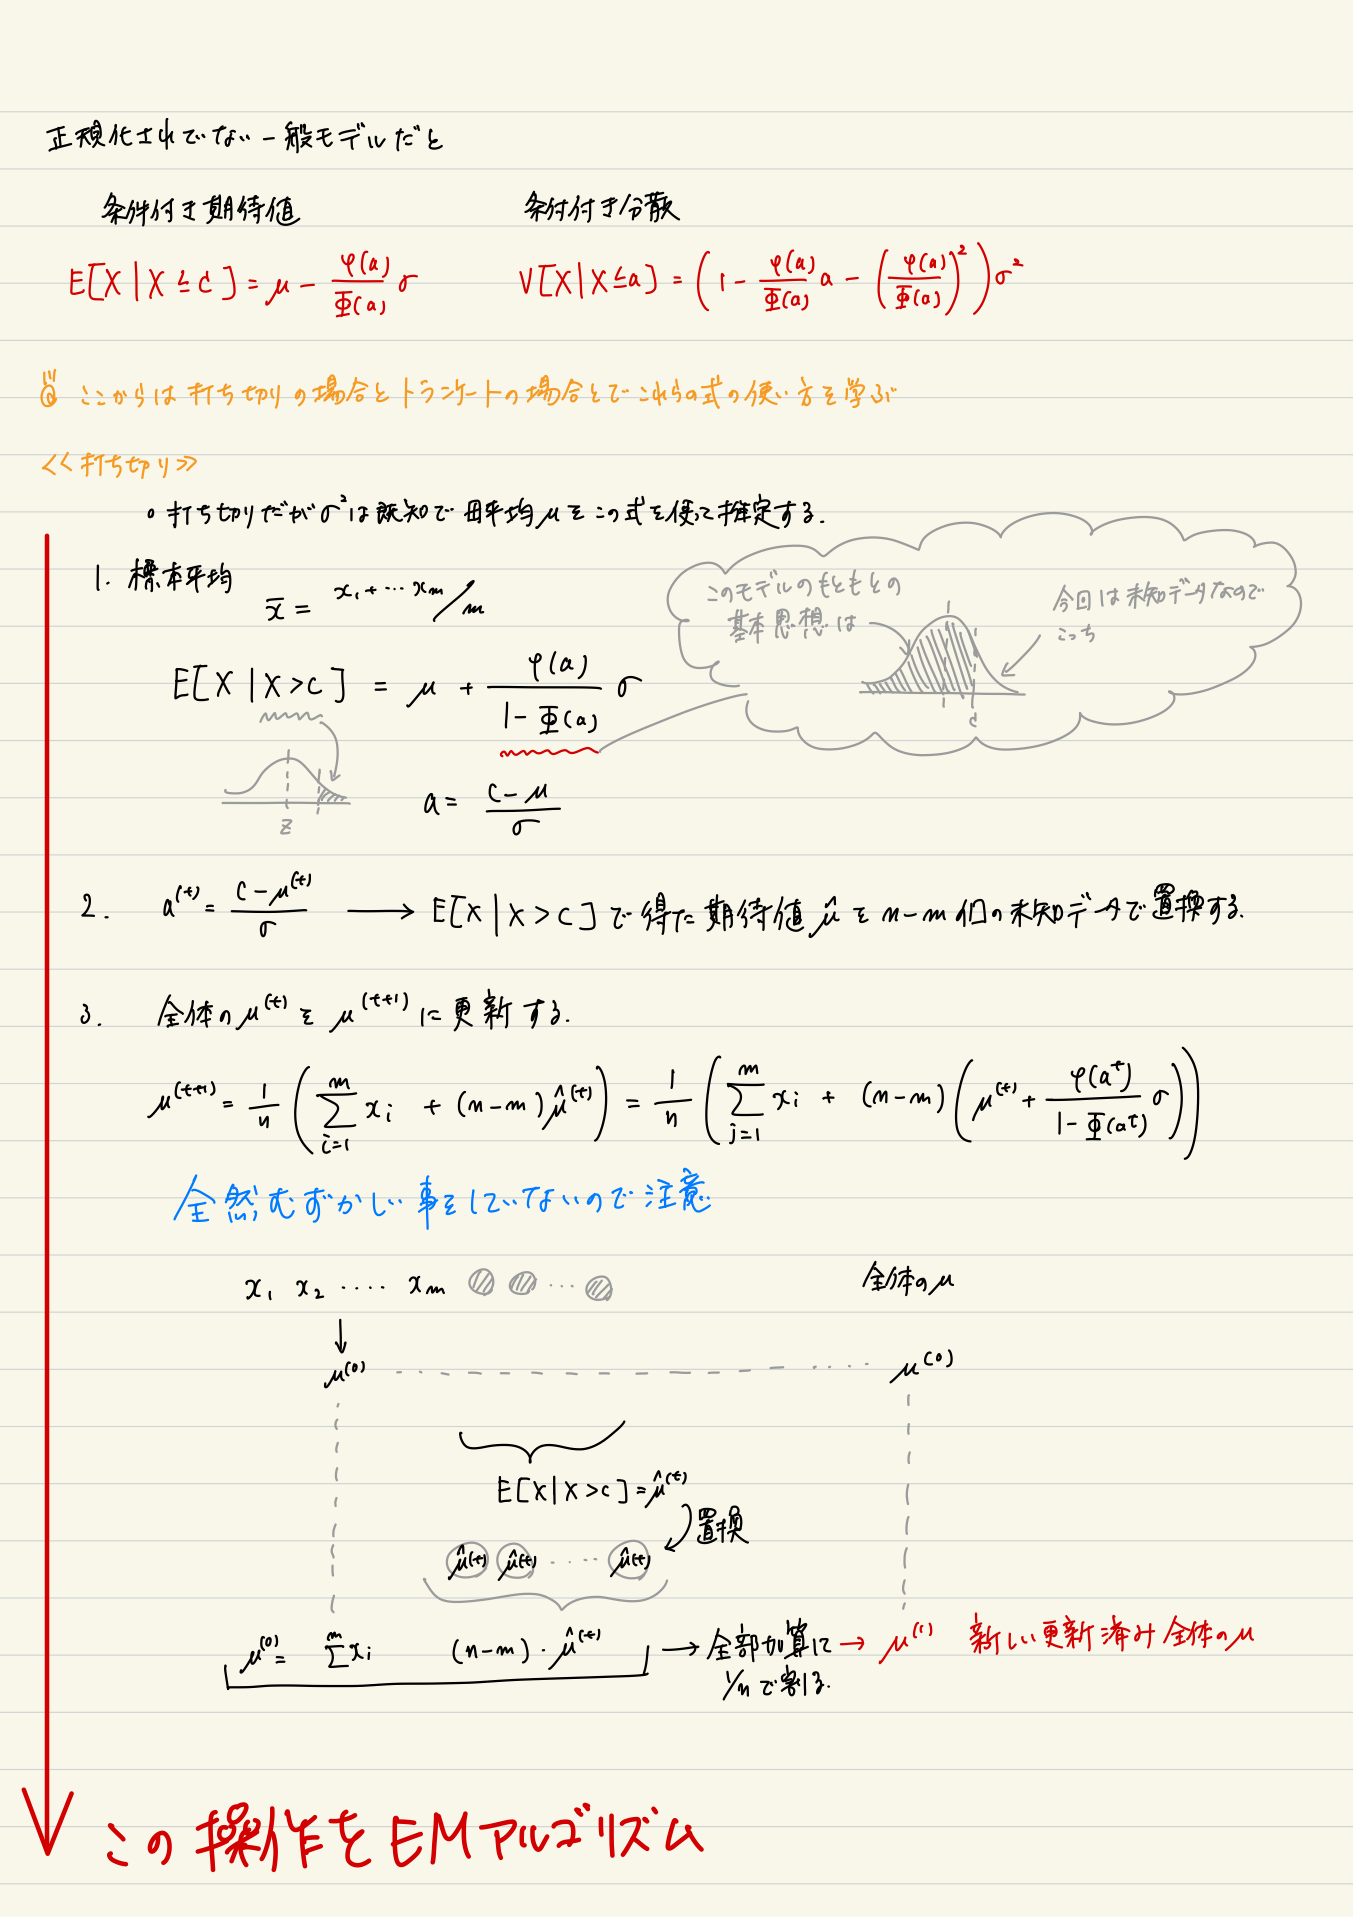 正規化されでない一般モデルだと
条件付き期待値　条付付き分散
E[X|X≦c] = μ − φ(a)/Φ(a) σ　V[X|X≦a] = (1 − φ(a)/Φ(a) a − (φ(a)/Φ(a))²)σ²
ここからは打ち切りの場合とトランケートの場合とでこれらの式の使い方を学ぶ
<<打ち切り>>
○ 打ち切りだがσ²は既知で母平均μをこの式を使って推定する.
1. 標本平均
x̄ = x₁+…xₘ/m
このモデルのもともとの
基本思想は
今回は未知データなので
こっち
c
E[X|X>c] = μ + φ(a)/(1−Φ(a)) σ
z
a = (c−μ)/σ
2. a^(t) = (c−μ^(t))/σ → E[X|X>c]で得た期待値μ̂をn−m個の未知データで置換する.
3. 全体のμ^(t)をμ^(t+1)に更新する.
μ^(t+1) = 1/n (Σ_{i=1}^{m} xᵢ + (n−m)μ̂^(t)) = 1/n (Σ_{j=1}^{m} xᵢ + (n−m)(μ^(t) + φ(a^t)/(1−Φ(a^t)) σ))
全然むずかしい事をしていないので注意
x₁ x₂ ‥‥ xₘ ‥　全体のμ
μ^(0)　μ^(0)
E[X|X>c] = μ̂^(t)
置換
μ̂^(t) μ̂^(t) ‥‥ μ̂^(t)
μ^(0) = Σ^m xᵢ　(n−m)・μ̂^(t) → 全部加算に → μ^(1) 新しい更新済み全体のμ
1/nで割る.
この操作をEMアルゴリズム